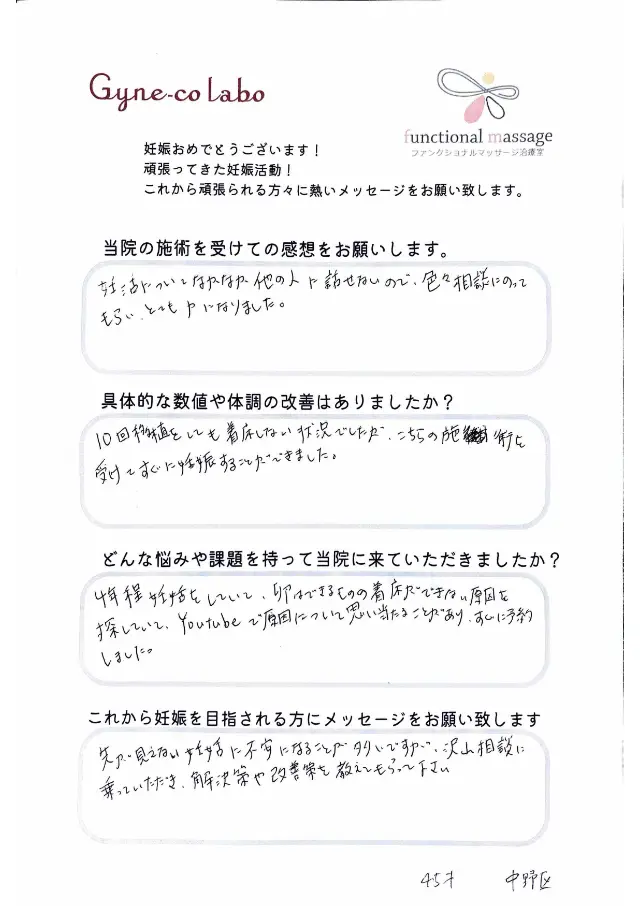 Gyne-co labo
functional massage
ファンクショナルマッサージ治療室
妊娠おめでとうございます！
頑張ってきた妊娠活動！
これから頑張られる方々に熱いメッセージをお願い致します。
当院の施術を受けての感想をお願いします。
妊活についてなかなか他の人に話せないので、色々相談にのって
もらい、とても力になりました。
具体的な数値や体調の改善はありましたか？
10回移植をしても着床しない状況でしたが、こちらの施術を
受けてすぐに妊娠することができました。
どんな悩みや課題を持って当院に来ていただきましたか？
4年程妊活をしていて、卵はできるものの着床ができない原因を
探していて、Youtubeで原因について思い当たることがあり、すぐに予約
しました。
これから妊娠を目指される方にメッセージをお願い致します
先が見えない妊活に不安になることが多いですが、沢山相談に
乗っていただき、解決策や改善策を教えてもらって下さい
45才 中野区